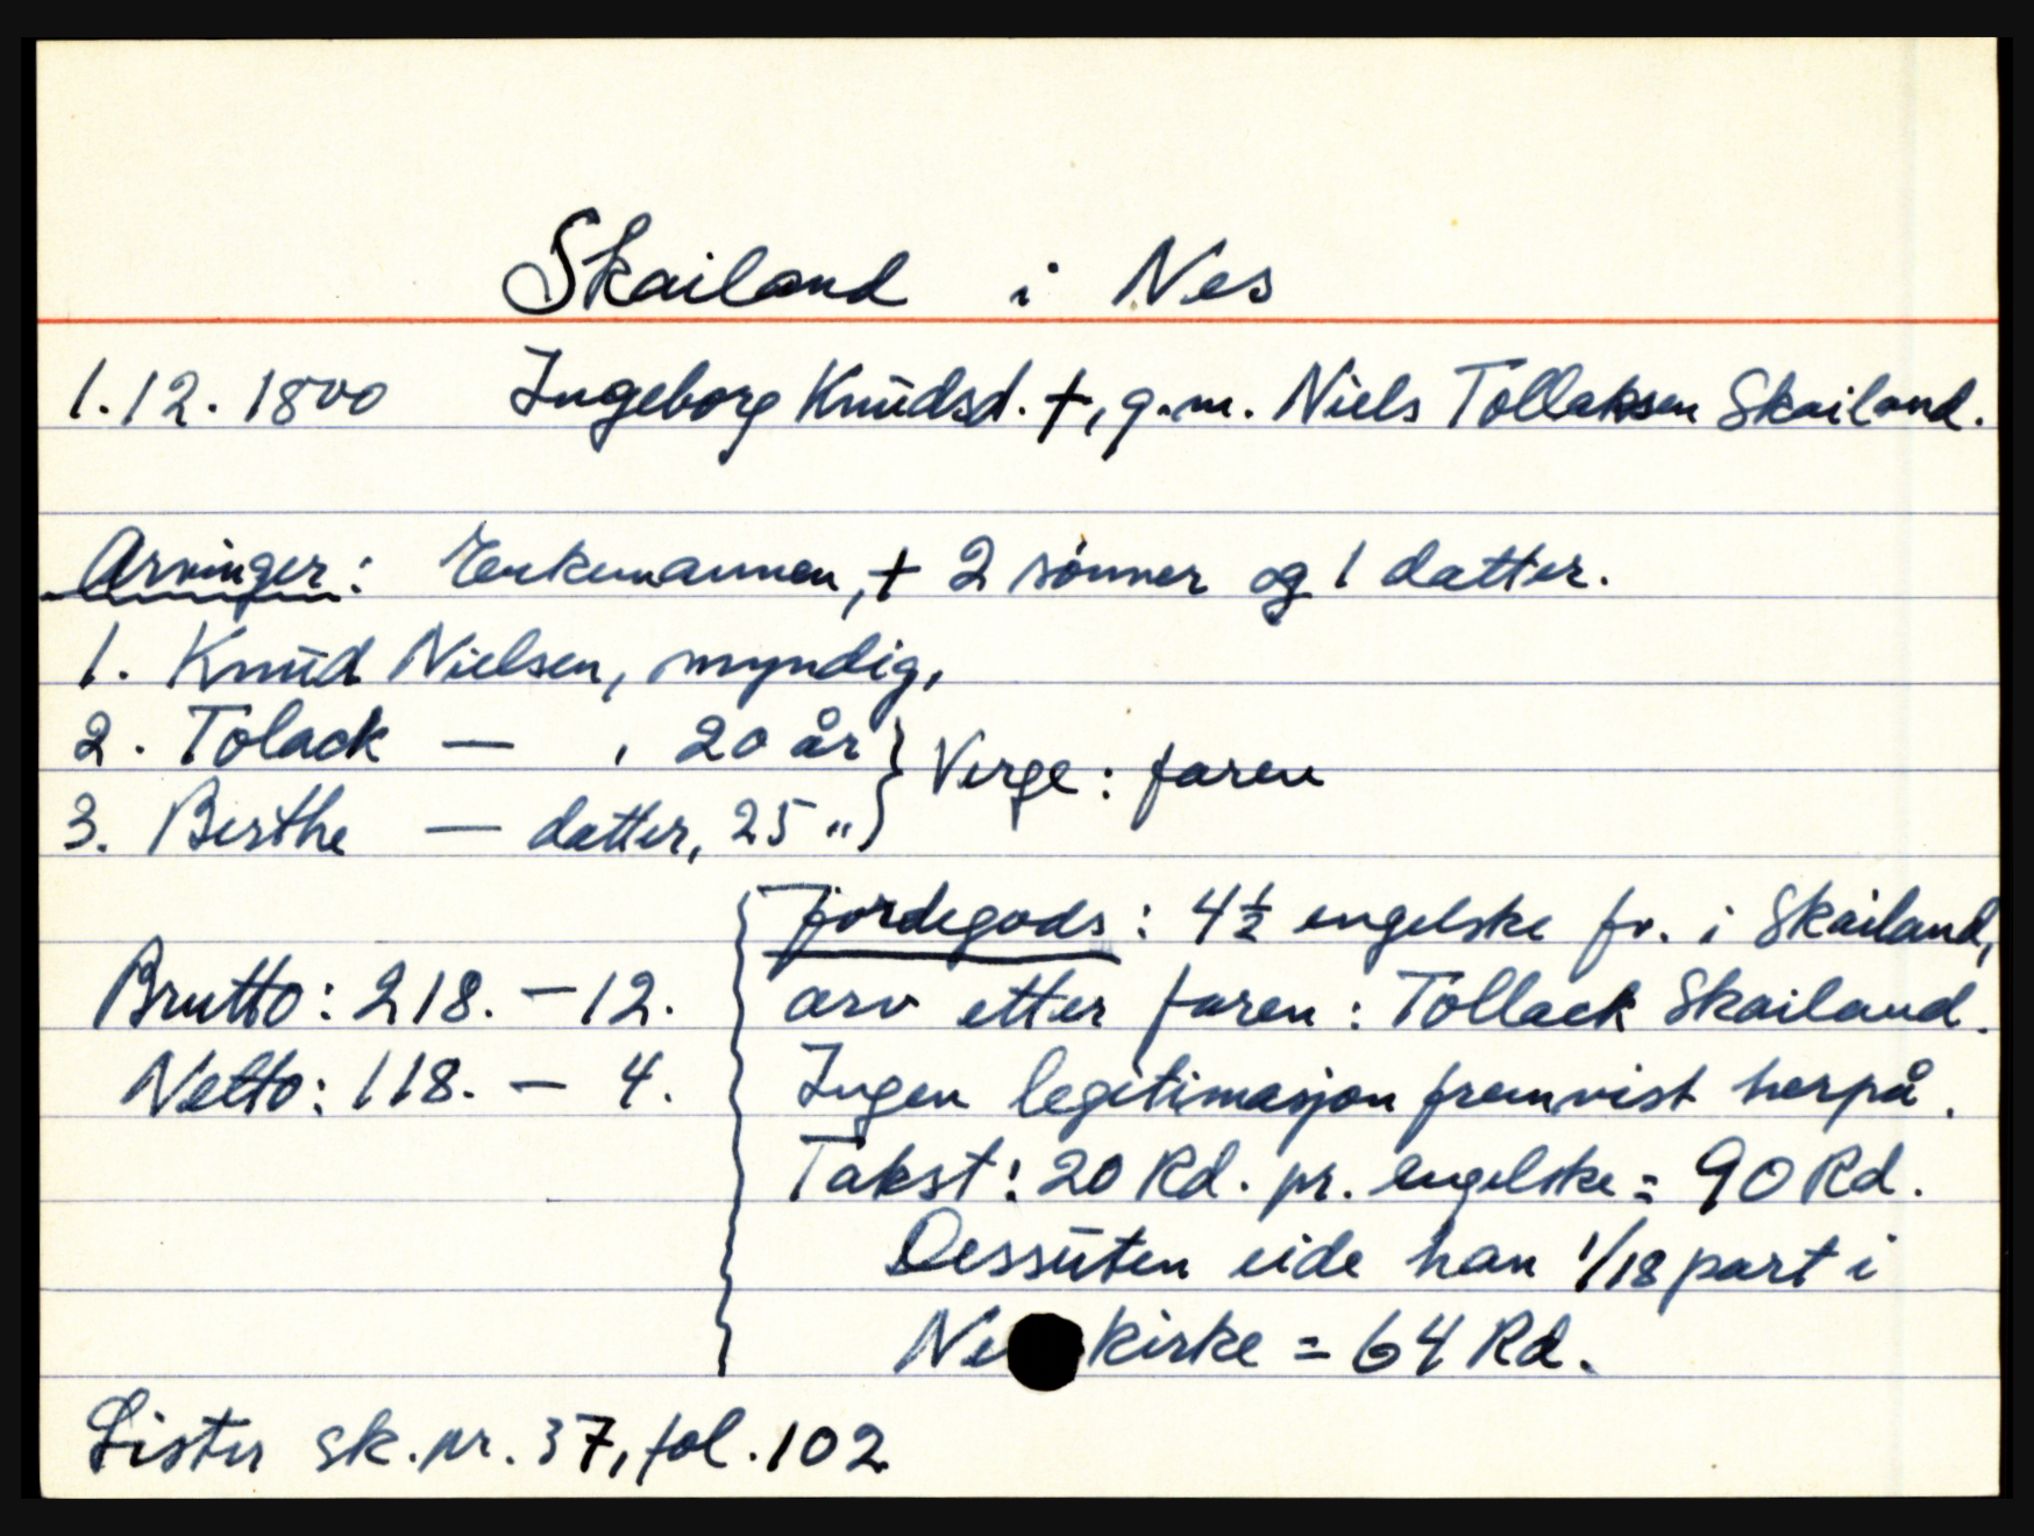 Skailand i Nes
1.12.1800 Ingeborg Knudsd. †, g.m. Niels Tollaksen Skailand.
Arvinger: Enkemannen, + 2 sønner og 1 datter.
1. Knud Nielsen, myndig,
2. Tolack — , 20 år
3. Berthe — datter, 25 "
} Verge: faren
Brutto: 218. - 12.
Netto: 118. - 4.
Jordegods: 4½ engelske fr. i Skailand,
arv etter faren: Tollack Skailand.
Ingen legitimasjon fremvist herpå.
Takst: 20 Rd. pr. engelske = 90 Rd.
Dessuten eide han 1/18 part i
Ne kirke = 64 Rd.
Lister sk.pr. 37, fol. 102